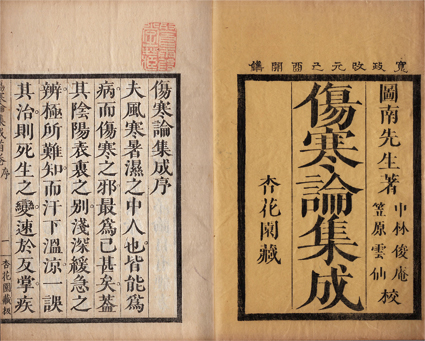 寬政改元己酉開鐫
圖南先生著
中林俊庵
笠原雲仙
校
傷寒論集成
杏花園藏
傷寒論集成序
夫風寒暑濕之中人也皆能為
病而傷寒之邪最為已甚矣蓋
其陰陽表裏之別淺深緩急之
辨極所難知而汗下溫涼一誤
其治則死生之變速於反掌疾
傷寒論集成
序
一
杏花園藏板